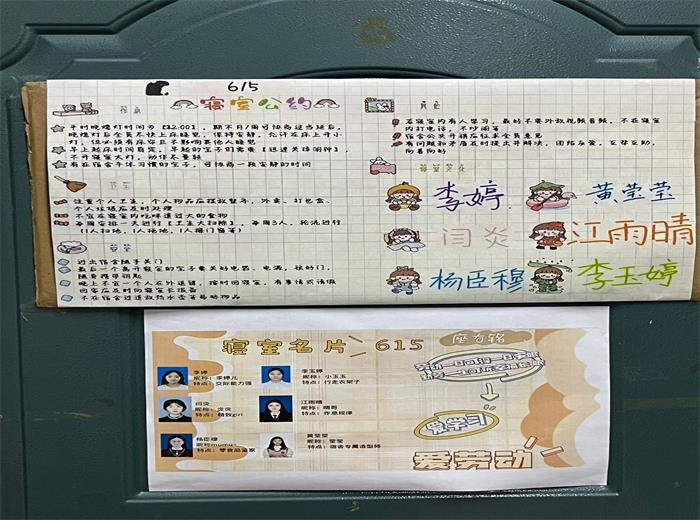 615
寝室公约
作息
平时晚熄灯时间为【22:00】，期末月/周可协商适当延后，
晚熄灯后全员尽快上床睡觉，保持安静，允许在床上开小
灯，但必须有床帘且不影响其他人睡觉
早上起床时间看完，早起的宝子们需要【迅速关掉闹钟】，
不开寝室大灯，动作尽量轻
有在宿舍午休习惯的宝子，可协商一段安静的时间
卫生
注重个人卫生，个人物品应摆放整齐，外卖、打包盒、
个人垃圾应及时处理
不宜在寝室内吃味道过大的食物
每周安排一天进行【卫生大扫除】，每周3人，轮流进行
安全
进出宿舍随手关门
最后一个离开寝室的宝子要关好电器、电源、锁好门，
随身携带钥匙
晚上不宜一个人在外逗留，按时回寝室，有事情或请假
回家应及时向寝室长报备
不在宿舍过道放热水壶等易碎物品
其它
若寝室内有人学习，最好不要外放视频音频，不在寝室
内打电话，不吵闹等
宿舍公共开销应征求全员意见
有问题和矛盾及时提出并解决，团结友爱，互帮互助，
向善向好
寝室文化
李婷 黄莹莹
闫炎 江雨晴
杨臣穆 李玉婷
寝室名片 615
座右铭
李婷
昵称：李婷儿
特点：交际能力强
李玉婷
昵称：小玉玉
特点：行走衣架子
闫炎
昵称：炎炎
特点：精致girl
江雨晴
昵称：晴哥
特点：作息规律
杨臣穆
昵称mumu
特点：零食品鉴家
黄莹莹
昵称：莹莹
特点：宿舍专属造型师
爱学习
爱劳动